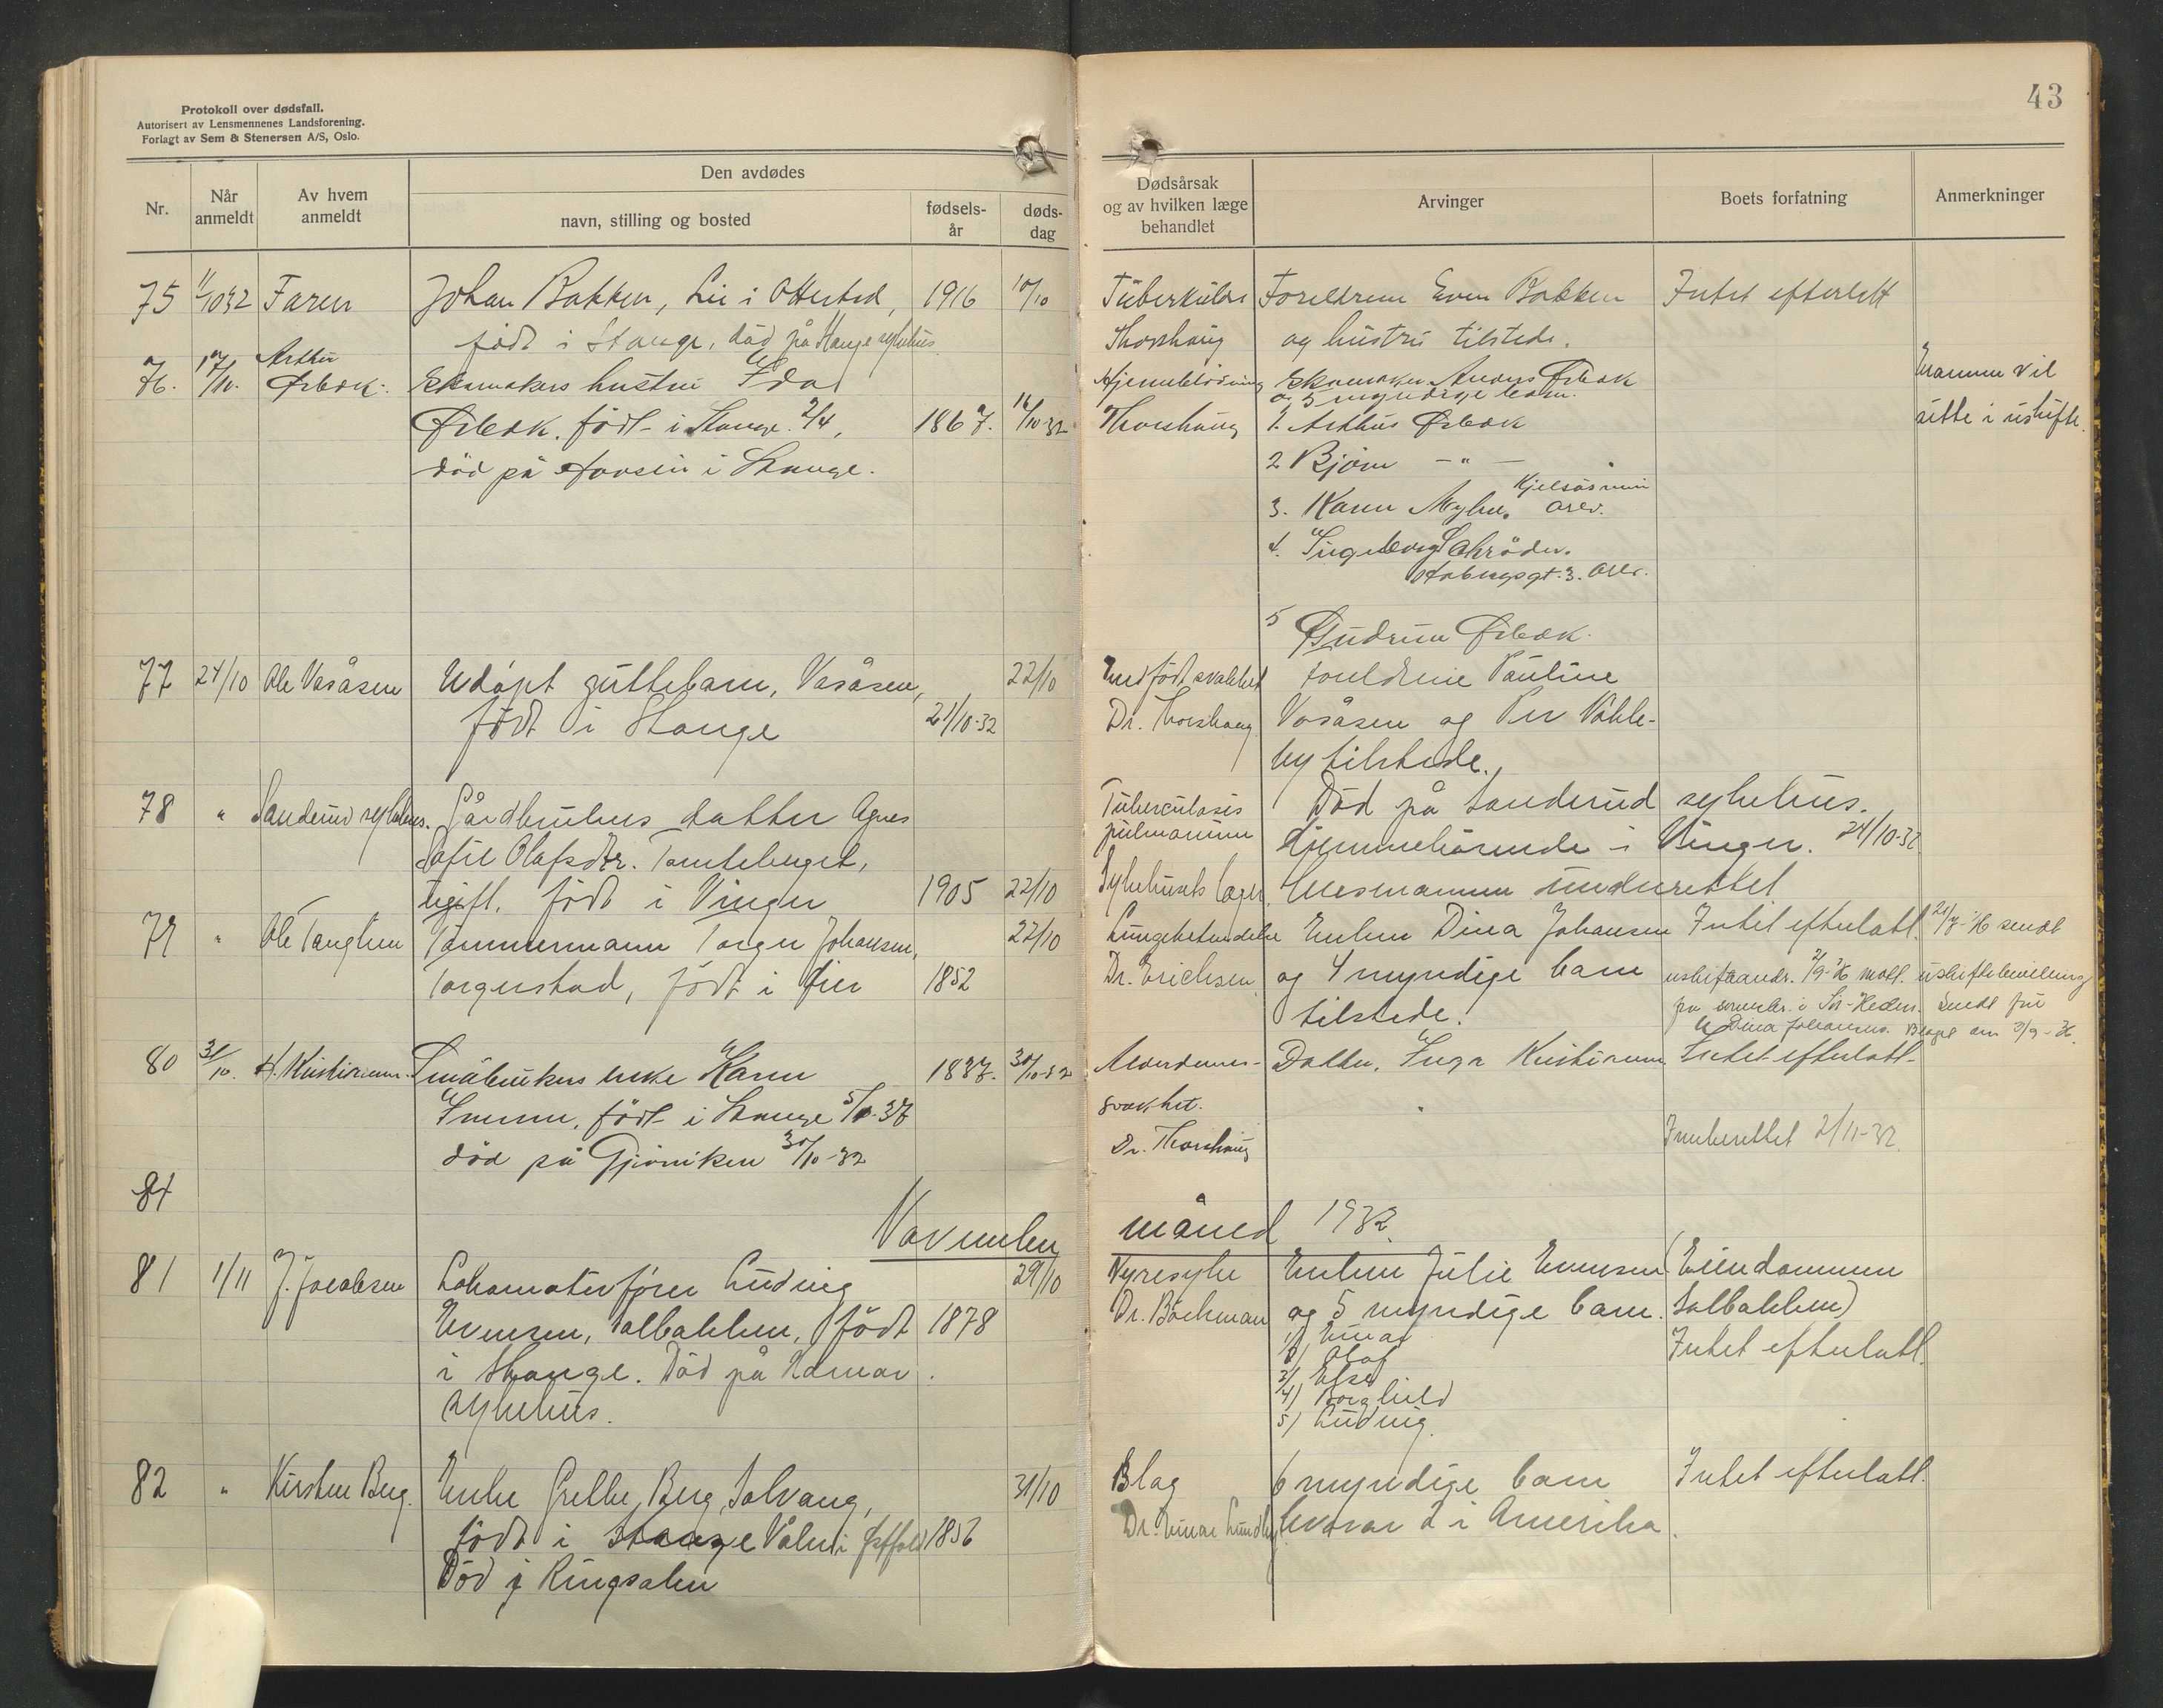 Protokoll over dødsfall.
Autorisert av Lensmennenes Landsforening.
Forlagt av Sem & Stenersen A/S, Oslo.
43
Nr.
Når anmeldt
Av hvem anmeldt
Den avdødes
navn, stilling og bosted
fødsels-år
døds-dag
Dødsårsak og av hvilken læge behandlet
Arvinger
Boets forfatning
Anmerkninger
75 11/10 32 Faren Johan Bakken, Lie i Ottestad, 1916 10/10 Tuberkulose Foreldrene Even Bakken Intet efterlatt
født i Stange, død på Stange sykehus Thorshaug og hustru tilstede.
76. 17/10. Arthur Ørbæk. Skomakers hustru Ida Hjerneblødning Skomaker Anders Ørbæk Mannen vil
og 5 myndige barn. sitte i uskifte.
Ørbæk. født i Stange 2/4, 1867. 16/10-32 Thorshaug 1. Arthur Ørbæk
død på i Stange. 2 Bjørn - " -
3. Karen Myhre. Kjelsåsveien
4. Ingeborg Schrøder.
3.
5 Gudrun Ørbæk.
77 24/10 Ole Vasåsen Udøpt guttebarn, Vasåsen, 22/10 Medfødt svakhet foreldrene Pauline
født i Stange 21/10-32 Dr. Thorshaug Vasåsen og Per
by tilstede.
78 " Sanderud sykehus. Gårdbrukers datter Agnes Tuberculosis Død på Sanderud sykehus.
Sofie Olafsdtr. Tomteberget, pulmonum Hjemmehørende i Vinger. 24/10-32
ugift, født i Vinger 1905 22/10 Sykehusets læger Lensmannen underrettet
79 " Ole Tangen Tømmermann Torger Johansen, 22/10 Lungebetendelse Enken Dina Johansen Intet efterlatt. 21/7-36 sendt
Torgerstad, født i 1852 Dr. Erichsen og 4 myndige barn 2/9-36 mott. uskiftebevilling
tilstede. fra sorenskr. i Sør-Hedm. sendt fru
Dina Johansen. 3/9-36.
80 31/10. H. Kristiansen. Småbrukers enke Karen 1837. 30/10-32 Alderdoms- Datter, Inga Kristiansen Intet efterlatt.
født i Stange 5/ 37 svakhet.
død på Gjøviken 30/10-32 Dr. Thorshaug Innberettet 2/11-32.
81
November måned 1932.
81 1/11 J. Jacobsen Lokomotivfører Ludvig 29/10 Nyresyke Enken Julie Evensen (Eiendommen
Evensen, Solbakken, født 1878 Dr. Bachman og 5 myndige barn. Solbakken)
i Stange. Død på Hamar 1) Einar Intet efterlatt.
sykehus. 2) Olaf
3) Else
4) Borghild
5) Ludvig.
82 " Kirsten Berg. Enke Grethe Berg, Solvang, 31/10 Slag 6 myndige barn Intet efterlatt.
født i Stange Våler i Østfold 1856 Dr. Einar Lundby hvorav 2 i Amerika.
Død i Ringsaker